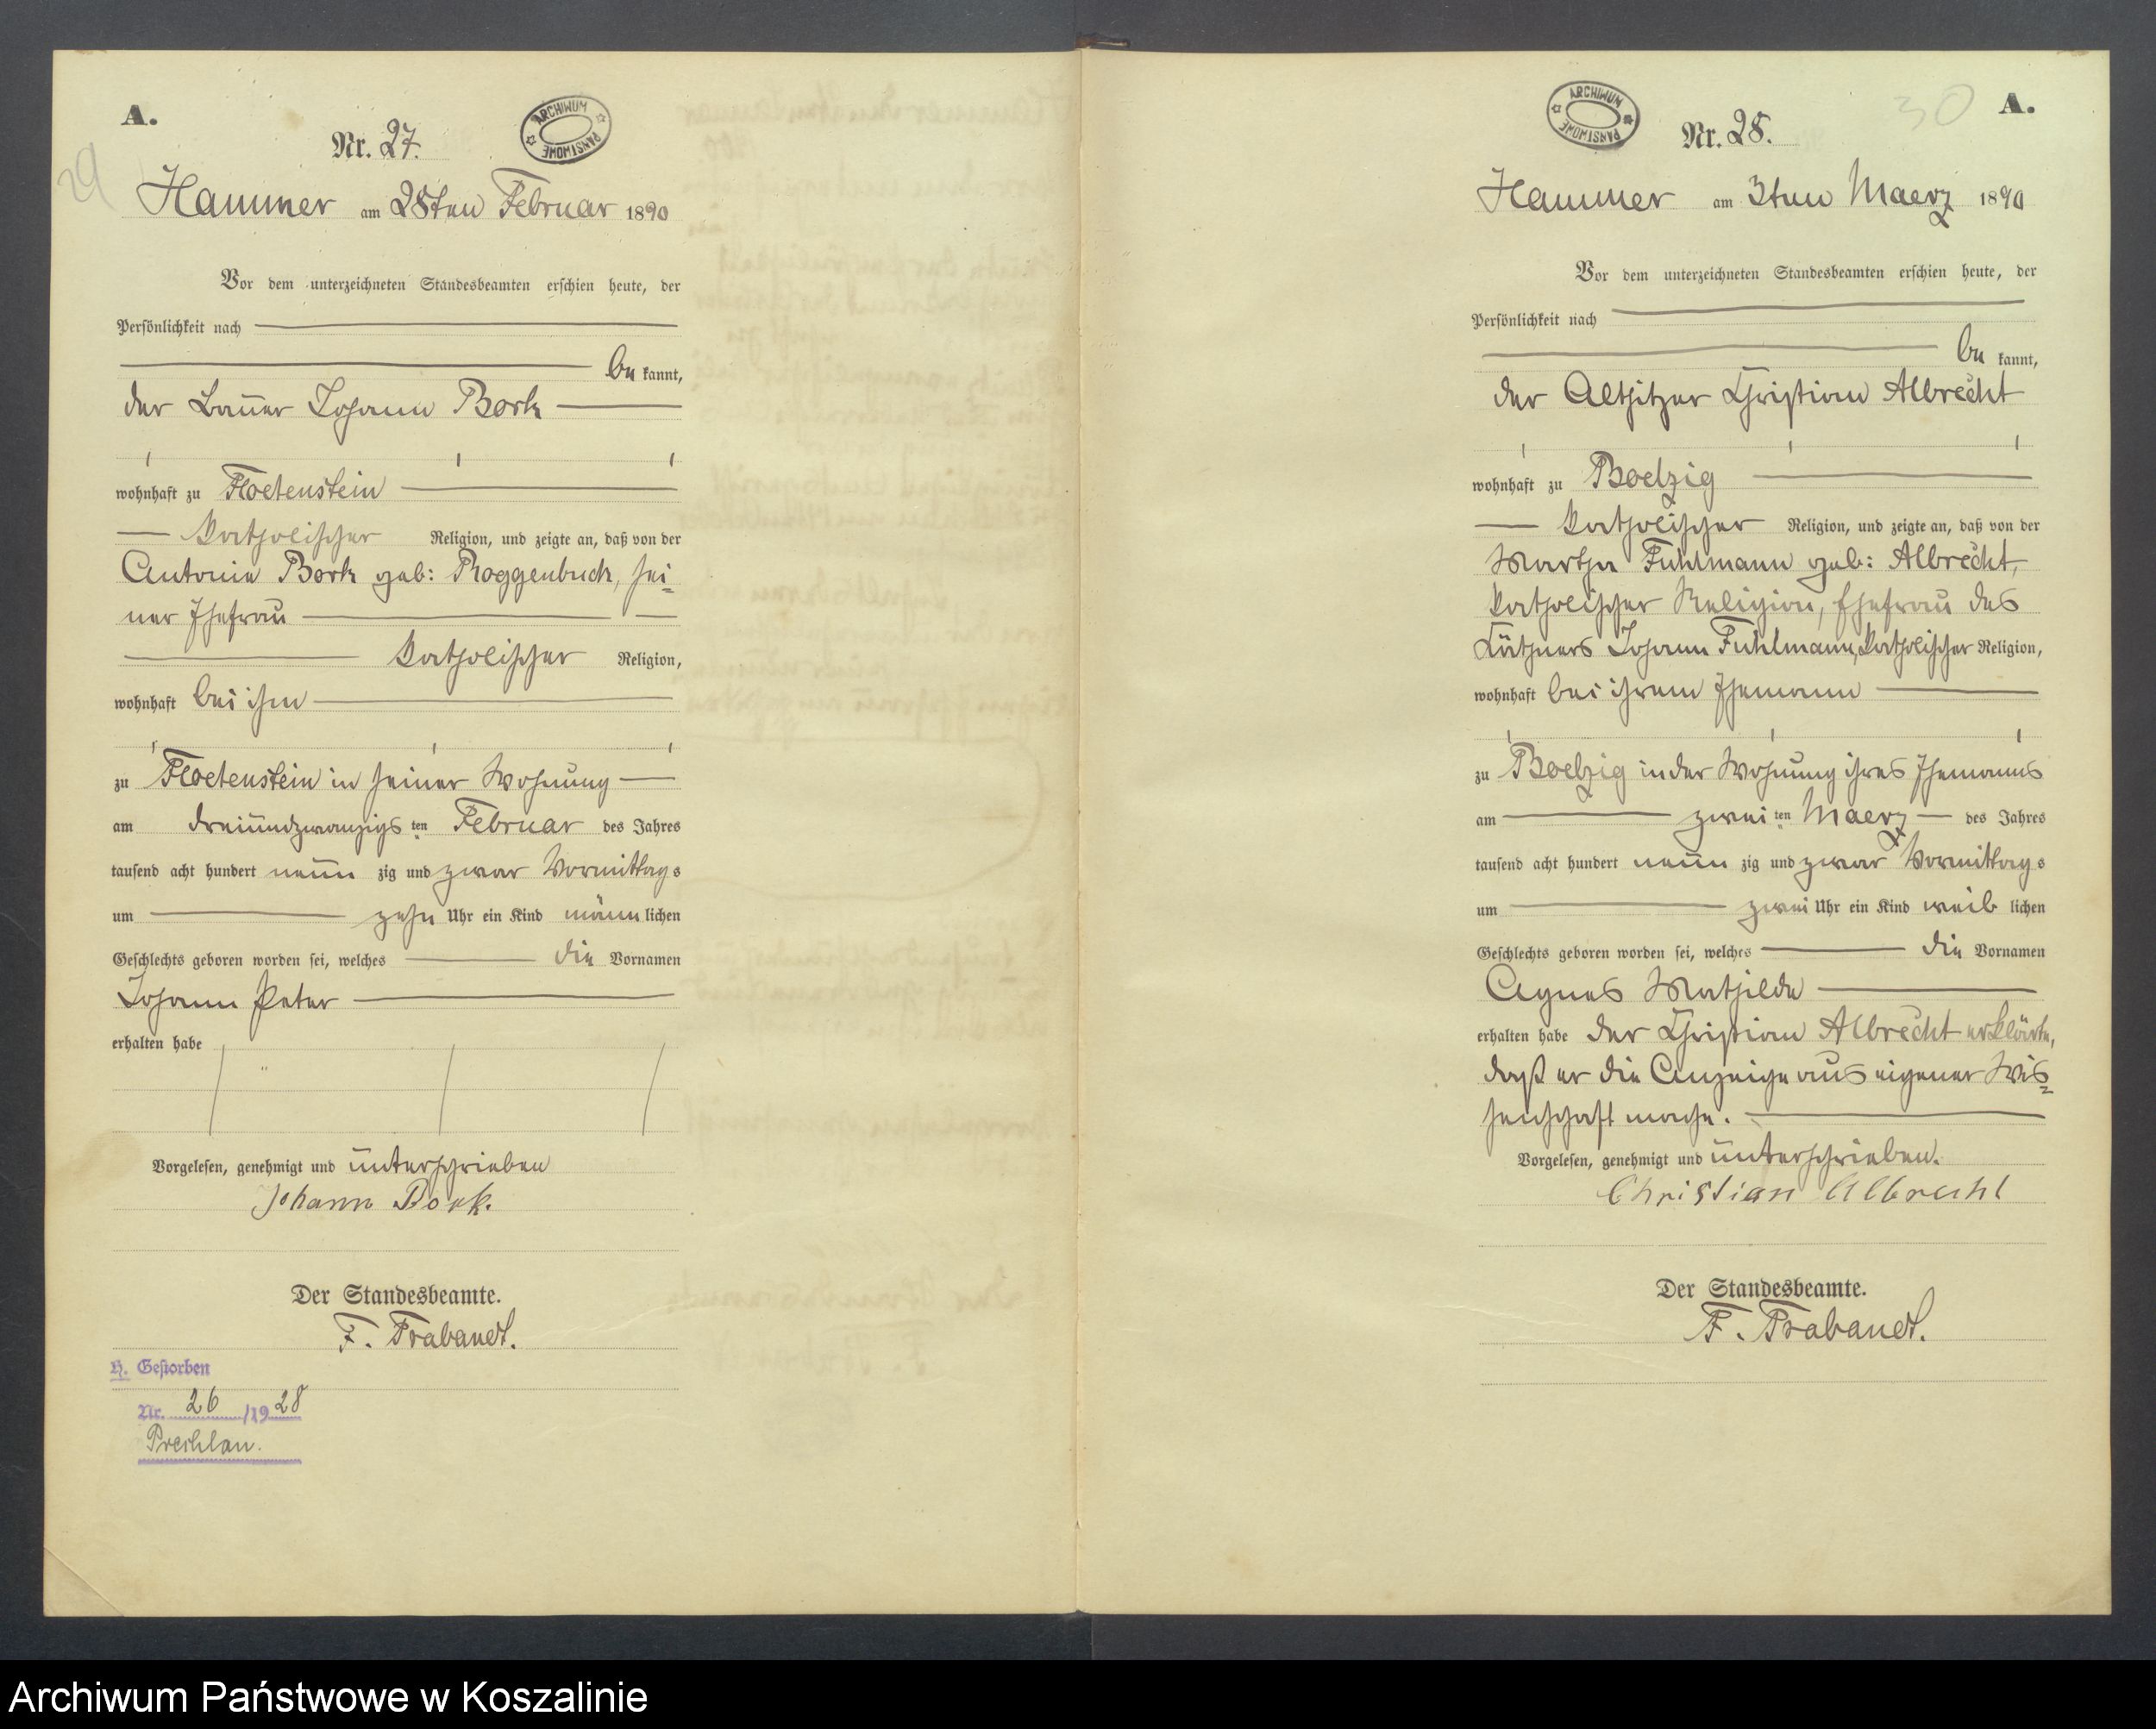 A.
29
Nr. 27.
ARCHIWUM PAŃSTWOWE
Hammer am 28ten Februar 1890
Vor dem unterzeichneten Standesbeamten erschien heute, der
Persönlichkeit nach
be kannt,
der Bauer Johann Bork
wohnhaft zu Floetenstein
katholischer Religion, und zeigte an, daß von der
Antonie Bork geb: Roggenbuck, sei=
ner Ehefrau
katholischer Religion,
wohnhaft bei ihm
zu Floetenstein in seiner Wohnung
am dreiundzwanzigs ten Februar des Jahres
tausend acht hundert neun zig und zwar Vormittags
um zehn Uhr ein Kind männ lichen
Geschlechts geboren worden sei, welches die Vornamen
Johann Peter
erhalten habe
Vorgelesen, genehmigt und unterschrieben
Johann Bork.
Der Standesbeamte.
F. Trabandt.
H. Gestorben
Nr. 26 /1928
Prechlau.
30
A.
ARCHIWUM PAŃSTWOWE
Nr. 28.
Hammer am 3ten Maerz 1890
Vor dem unterzeichneten Standesbeamten erschien heute, der
Persönlichkeit nach
be kannt,
der Altsitzer Christian Albrecht
wohnhaft zu Boelzig
katholischer Religion, und zeigte an, daß von der
Martha Fuhlmann geb: Albrecht,
katholischer Religion, Ehefrau des
Käthners Johann Fuhlmann, katholischer Religion,
wohnhaft bei ihrem Ehemann
zu Boelzig in der Wohnung ihres Ehemanns
am zwei ten Maerz des Jahres
tausend acht hundert neun zig und zwar Vormittags
um zwei Uhr ein Kind weib lichen
Geschlechts geboren worden sei, welches die Vornamen
Agnes Mathilde
erhalten habe der Christian Albrecht erklärte,
daß er die Anzeige aus eigener Wis=
senschaft mache.
Vorgelesen, genehmigt und unterschrieben.
Christian Albrecht
Der Standesbeamte.
F. Trabandt.
Archiwum Państwowe w Koszalinie